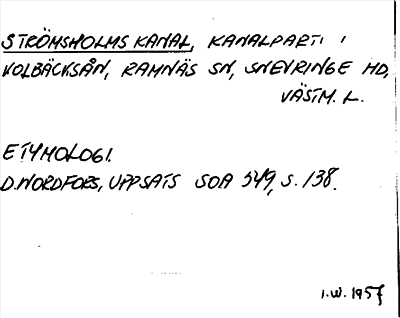 STRÖMSHOLMS KANAL, KANALPARTI I
KOLBÄCKSÅN, RAMNÄS SN, SNEVRINGE HD,
VÄSTM. L.
ETYMOLOGI.
D. NORDFORS, UPPSATS SOA 549, S. 138.
I.W. 1957